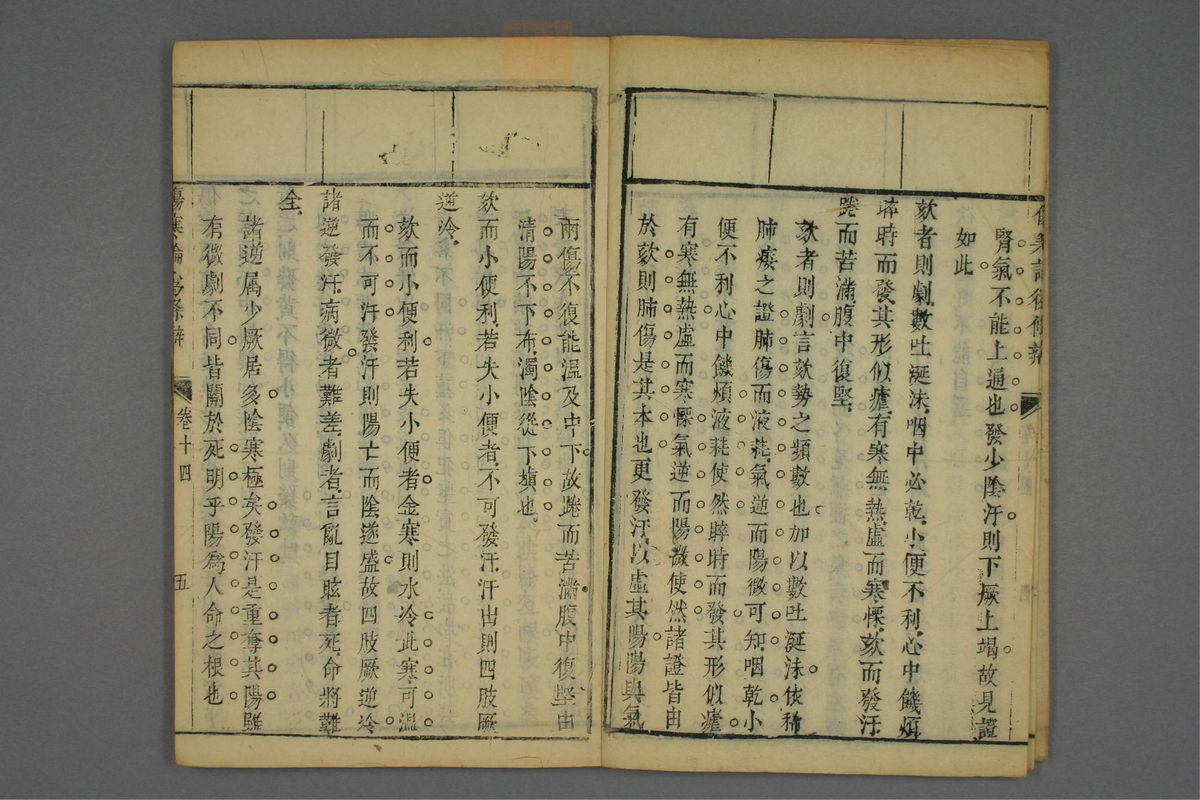 腎氣不能上通也發少陰汗則下厥上竭故見證
如此
欬者則劇數吐涎沫咽中必乾小便不利心中饑煩
晬時而發其形似瘧有寒無熱虛而寒慄欬而發汗
踡而苦滿腹中復堅
欬者則劇言欬勢之頻數也加以數吐涎沫依稀
肺痿之證肺傷而液耗氣逆而陽微可知咽乾小
便不利心中饑煩液耗使然晬時而發其形似瘧
有寒無熱虛而寒慄氣逆而陽微使然諸證皆由
於欬則肺傷是其本也更發汗以虛其陽陽與氣
兩傷不復能溫及中下故踡而苦滿腹中復堅由
清陽不下布濁陰從下填也
欬而小便利若失小便者不可發汗汗出則四肢厥
逆冷
欬而小便利若失小便者金寒則水冷此寒可溫
而不可汗發汗則陽亡而陰遂盛故四肢厥逆冷
諸逆發汗病微者難差劇者言亂目眩者死命將難
全
諸逆属少厥居多陰寒極矣發汗是重奪其陽雖
有微劇不同皆關於死明乎陽爲人命之根也
傷寒論後條辨
卷十四
五